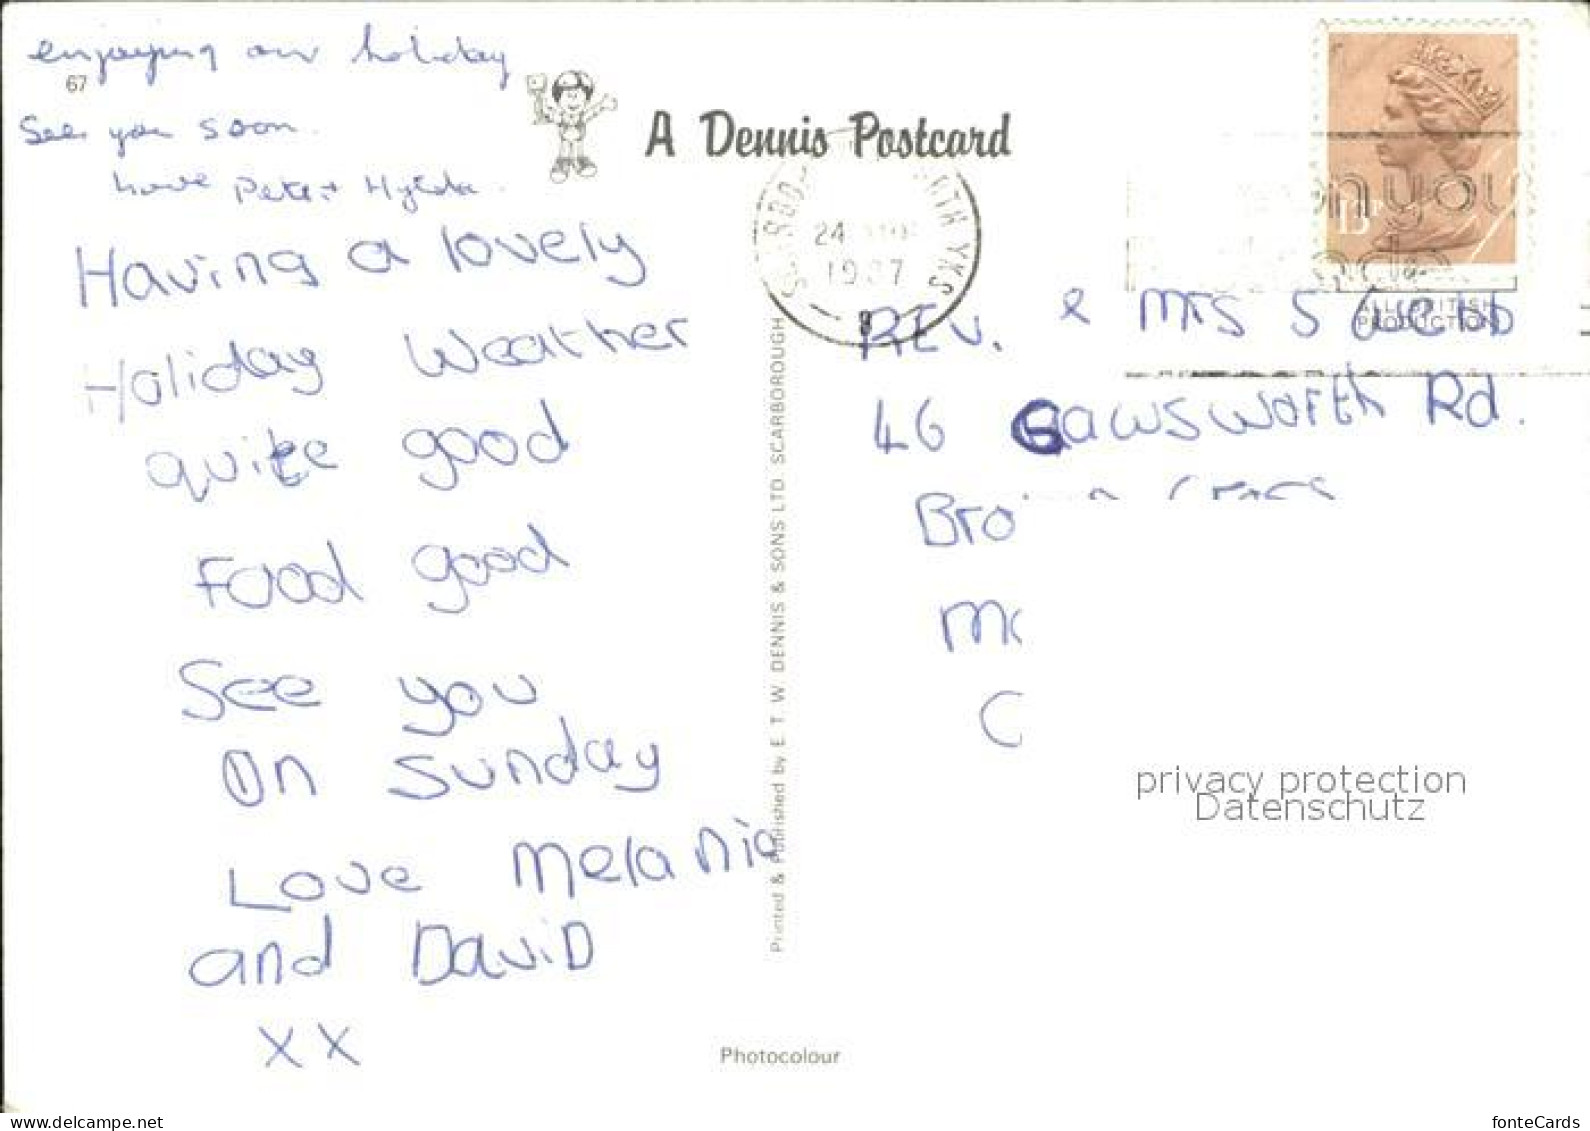 enjoying our holiday
67
See you soon.
love Peter + Hylda.
Having a lovely
Holiday Weather
quite good
Food good
See you
On Sunday
Love Melanie
and David
XX
A Dennis Postcard
24
1987
YKS
13P
ALL BRITISH
PRODUCTION
REV. & Mrs S
46 Gawsworth Rd.
Bro
C
Printed & Published by E. T. W. DENNIS & SONS LTD. SCARBOROUGH
privacy protection
Datenschutz
Photocolour
www.delcampe.net
fonteCards